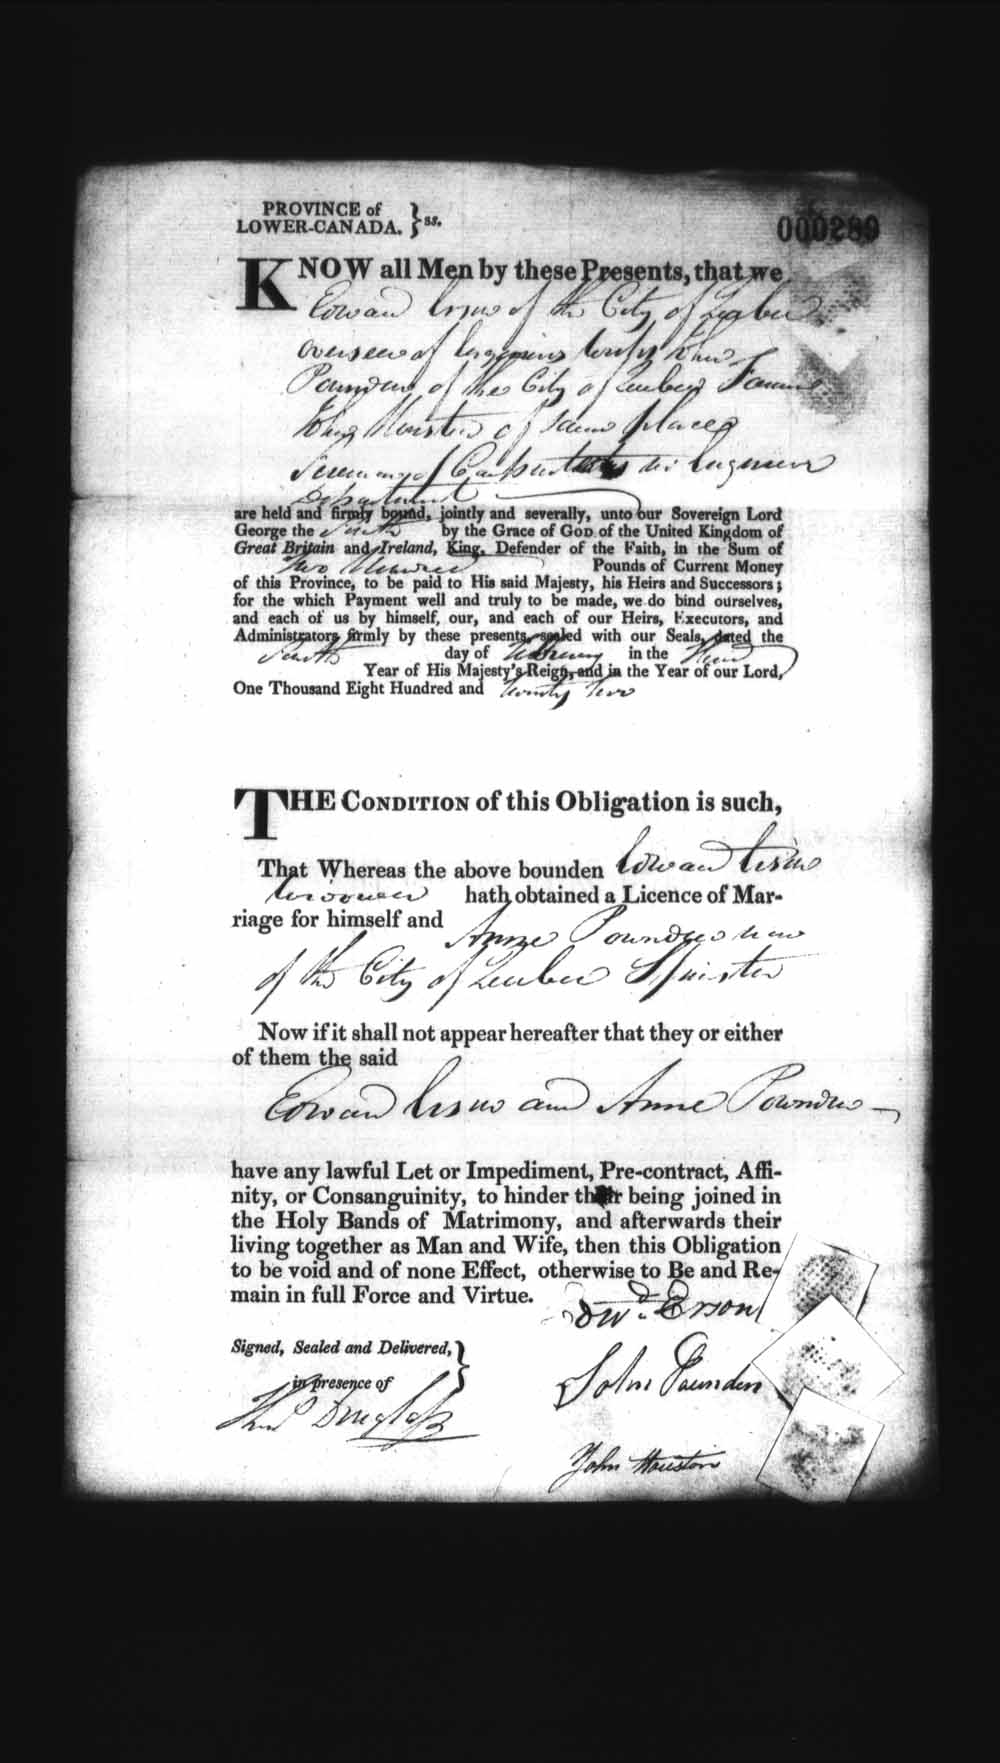 PROVINCE of
LOWER-CANADA. } ss.
000289
KNOW all Men by these Presents, that we
Edward Erson of the City of Quebec
overseer of Engineers Works John
Pounden of the City of Quebec
John Houston of same place
of Carpenters in Engineer
Department
are held and firmly bound, jointly and severally, unto our Sovereign Lord
George the Fourth by the Grace of GOD of the United Kingdom of
Great Britain and Ireland, King, Defender of the Faith, in the Sum of
Two Hundred Pounds of Current Money
of this Province, to be paid to His said Majesty, his Heirs and Successors;
for the which Payment well and truly to be made, we do bind ourselves,
and each of us by himself, our, and each of our Heirs, Executors, and
Administrators firmly by these presents, sealed with our Seals, dated the
day of February in the Third
Year of His Majesty's Reign, and in the Year of our Lord,
One Thousand Eight Hundred and twenty two
THE CONDITION of this Obligation is such,
That Whereas the above bounden Edward Erson
Widower hath obtained a Licence of Mar-
riage for himself and Anne Pounden now
of the City of Quebec Spinster
Now if it shall not appear hereafter that they or either
of them the said
Edward Erson and Anne Pounden
have any lawful Let or Impediment, Pre-contract, Affi-
nity, or Consanguinity, to hinder their being joined in
the Holy Bands of Matrimony, and afterwards their
living together as Man and Wife, then this Obligation
to be void and of none Effect, otherwise to Be and Re-
main in full Force and Virtue.
Edwd. Erson
Signed, Sealed and Delivered,
in presence of
John Pounden
Thos Douglass
John Houston